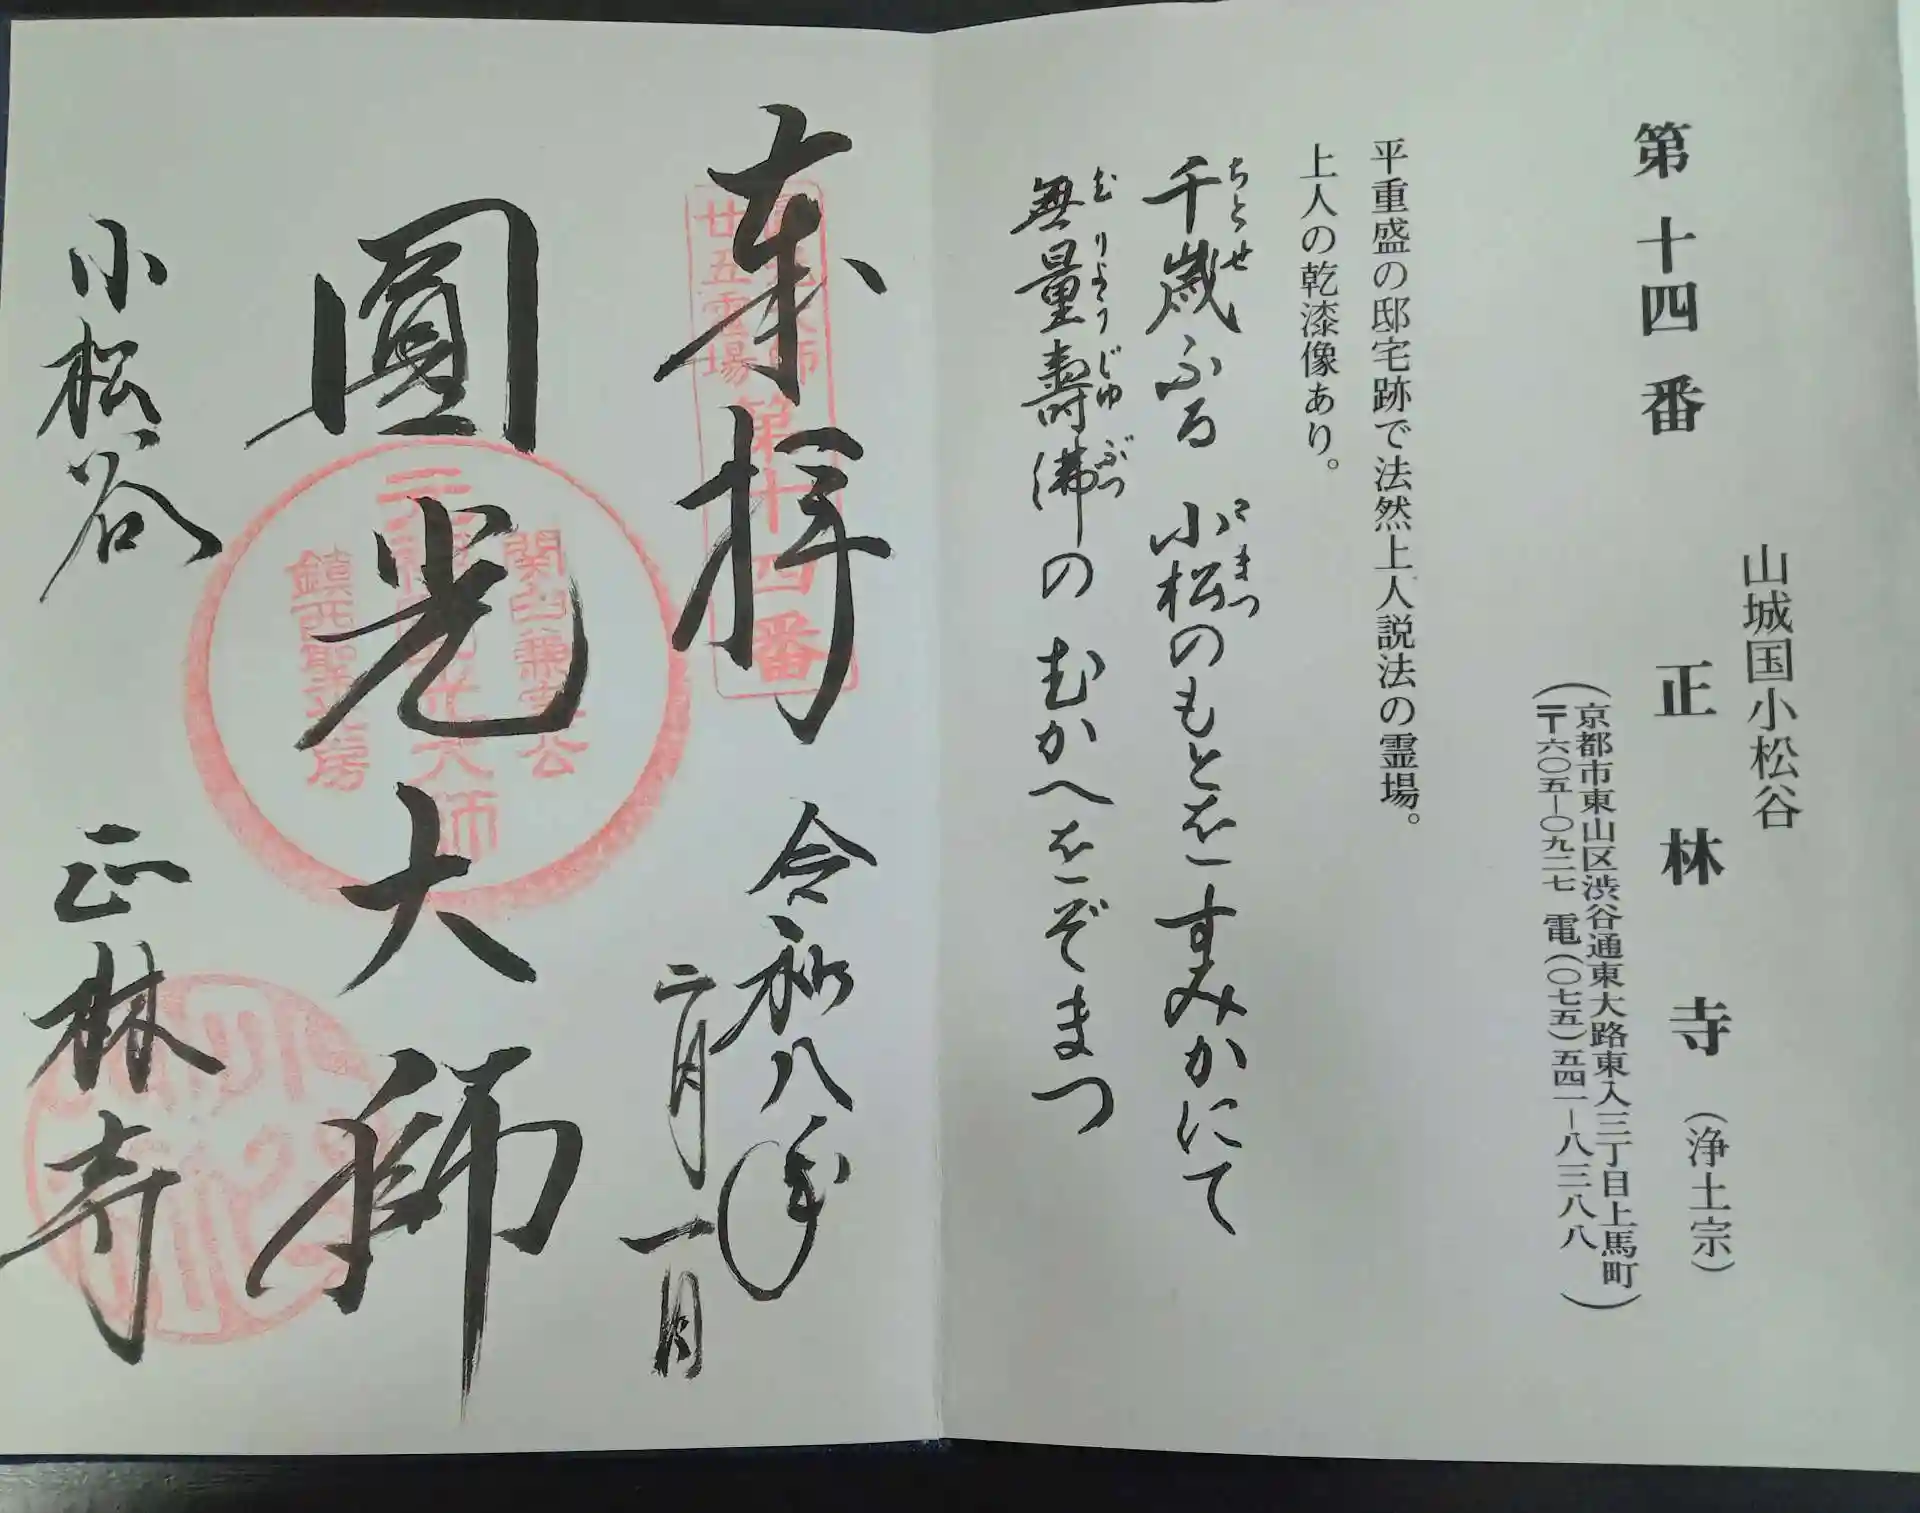 第十四番
山城国小松谷
正林寺（浄土宗）
（京都市東山区渋谷通東大路東入三丁目上馬町
〒六〇五－〇九二七 電（〇七五）五四一－八三八八）
平重盛の邸宅跡で法然上人説法の霊場。
上人の乾漆像あり。
千歳ふる 小松のもとを すみかにて
ちとせ
こまつ
無量壽佛の むかへをぞまつ
むりようじゆぶつ
奉拝 令和八年
二月一日
廿五霊場
第十四番
圓光大師
小松谷 正林寺